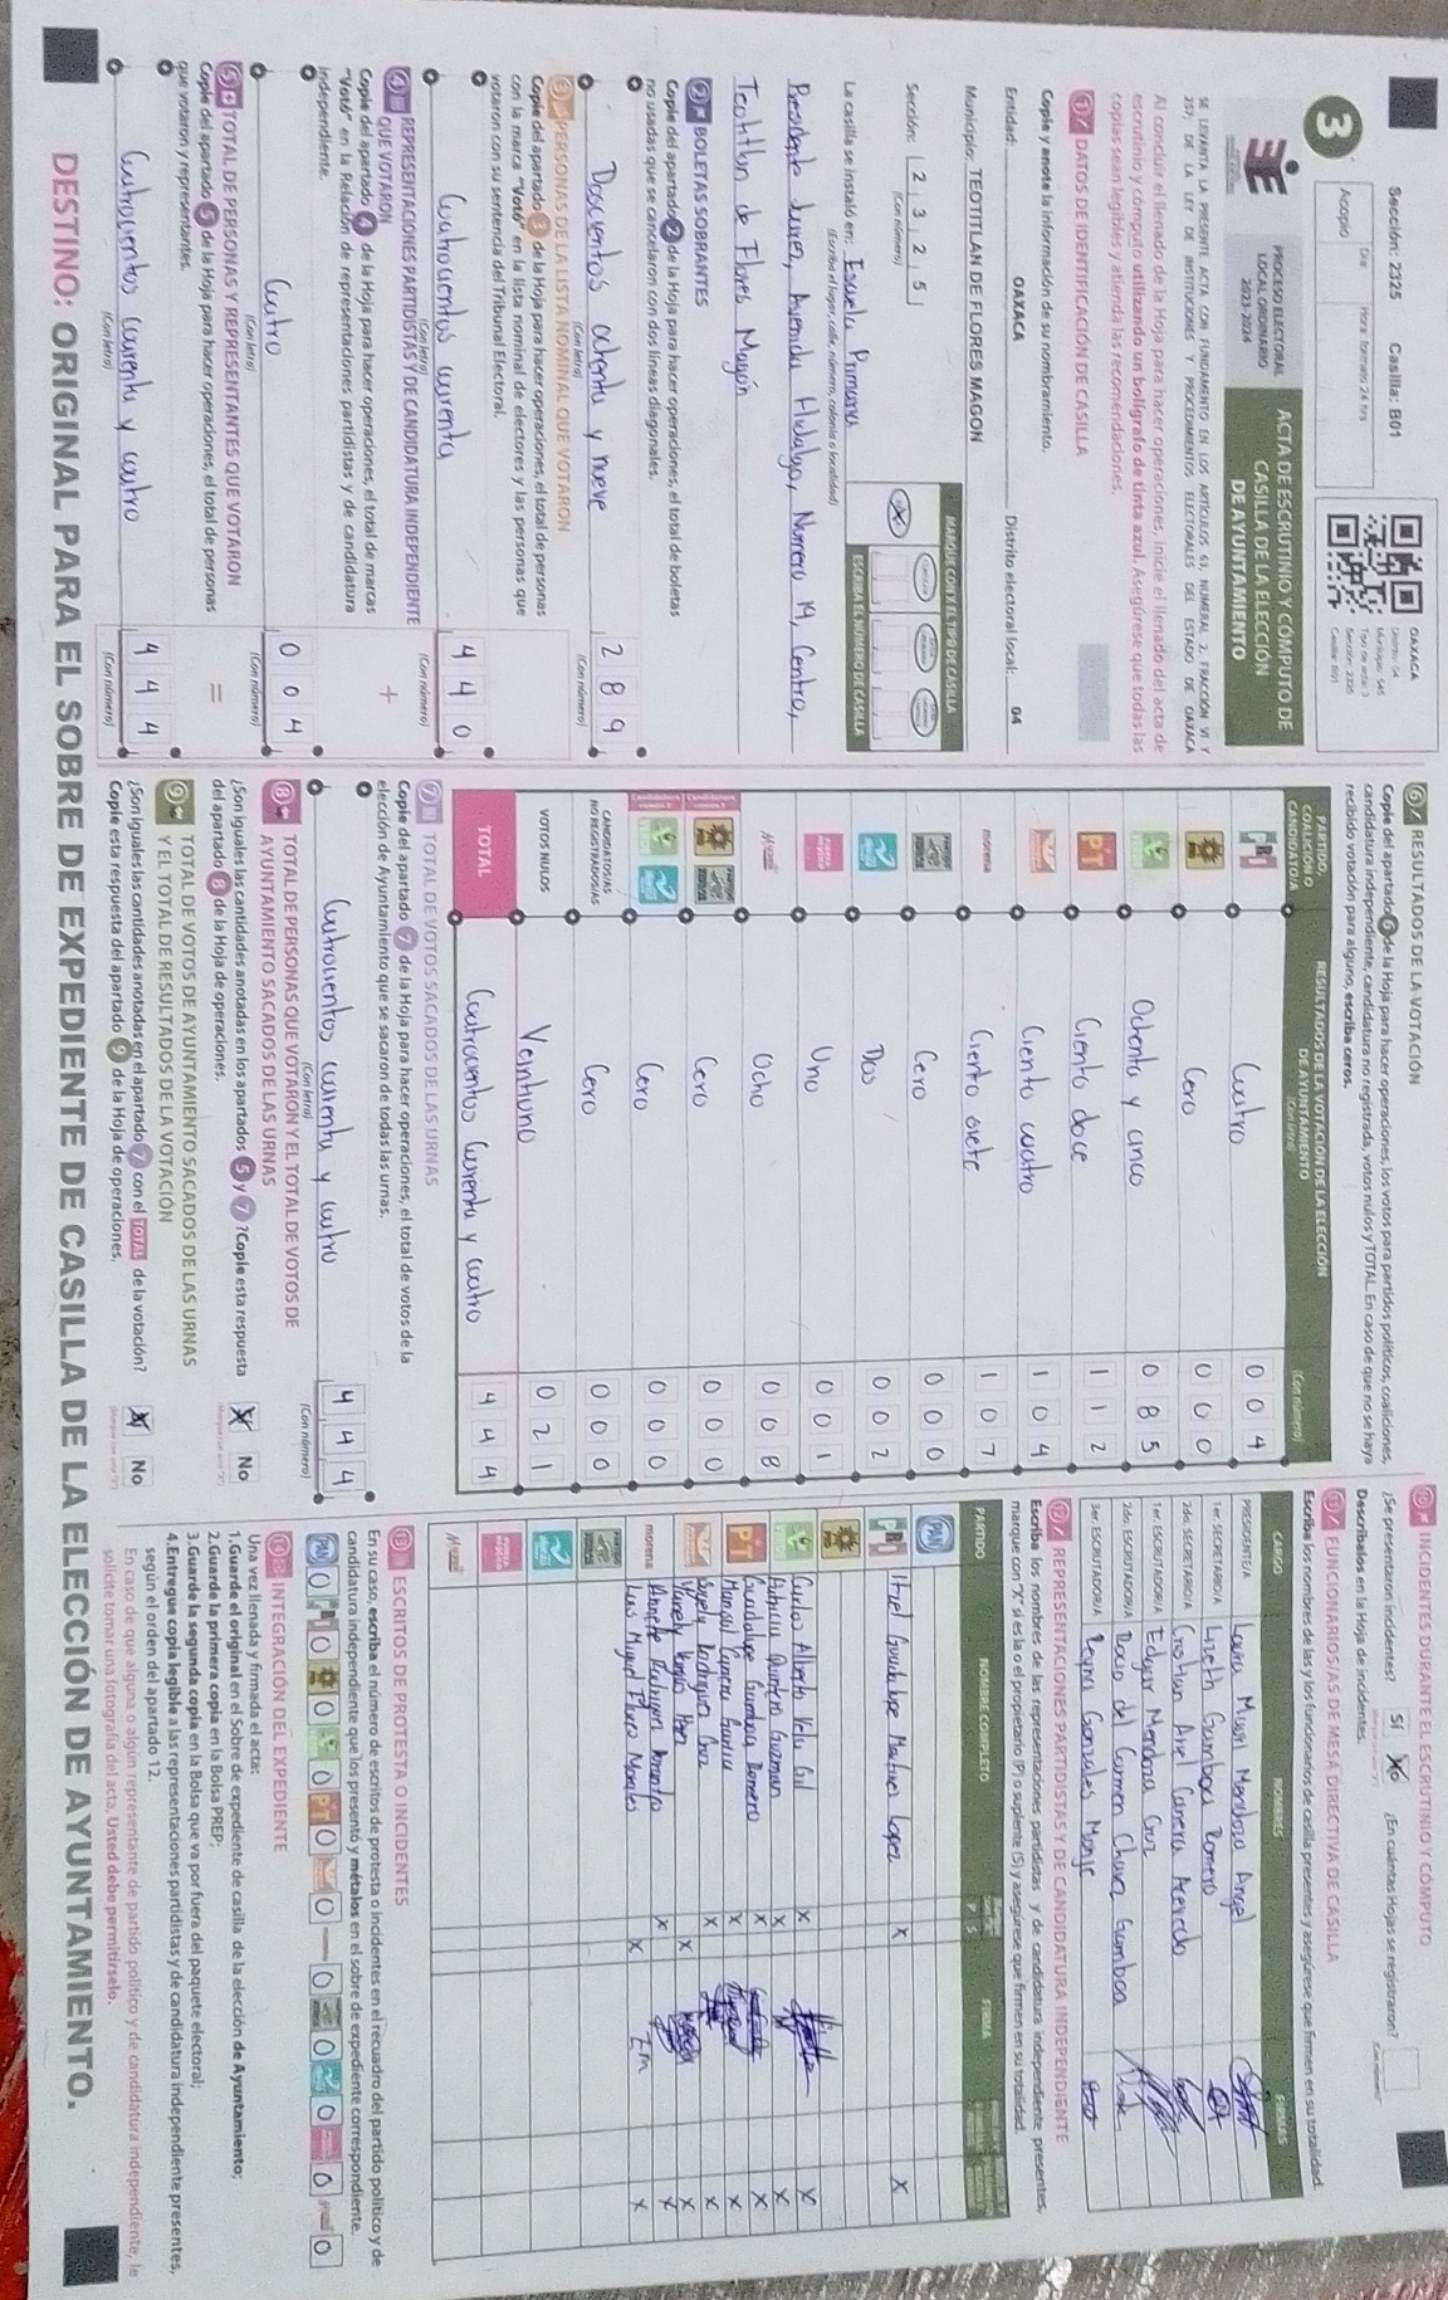 Sección: 2325 Casilla: B01
Acopio
Día
Hora formato 24 hrs
OAXACA
3
PROCESO ELECTORAL
LOCAL ORDINARIO
2023-2024
ACTA DE ESCRUTINIO Y CÓMPUTO DE
CASILLA DE LA ELECCIÓN
DE AYUNTAMIENTO
SE LEVANTA LA PRESENTE ACTA CON FUNDAMENTO EN LOS ARTÍCULOS 61, NUMERAL 2, FRACCIÓN VI Y
257, DE LA LEY DE INSTITUCIONES Y PROCEDIMIENTOS ELECTORALES DEL ESTADO DE OAXACA
Al concluir el llenado de la Hoja para hacer operaciones, inicie el llenado del acta de
escrutinio y cómputo utilizando un bolígrafo de tinta azul. Asegúrese que todas las
copias sean legibles y atienda las recomendaciones.
1 DATOS DE IDENTIFICACIÓN DE CASILLA
Copie y anote la información de su nombramiento.
Entidad: OAXACA Distrito electoral local: 04
Municipio: TEOTITLAN DE FLORES MAGON
Sección: 2 3 2 5
(Con número)
MARQUE CON X EL TIPO DE CASILLA
ESCRIBA EL NÚMERO DE CASILLA
La casilla se instaló en: Escuela Primaria
(Escriba el lugar, calle, número, colonia o localidad)
Presidente Juarez, Avenida Hidalgo, Numero 19, Centro,
Teotitlan de Flores Magón
2 BOLETAS SOBRANTES
Copie del apartado 2 de la Hoja para hacer operaciones, el total de boletas
no usadas que se cancelaron con dos líneas diagonales.
Doscientos ochenta y nueve 2 8 9
(Con letra) (Con número)
3 PERSONAS DE LA LISTA NOMINAL QUE VOTARON
Copie del apartado 3 de la Hoja para hacer operaciones, el total de personas
con la marca "Votó" en la lista nominal de electores y las personas que
votaron con su sentencia del Tribunal Electoral.
Cuatrocientos cuarenta 4 4 0
(Con letra) (Con número)
4 REPRESENTACIONES PARTIDISTAS Y DE CANDIDATURA INDEPENDIENTE
QUE VOTARON +
Copie del apartado 4 de la Hoja para hacer operaciones, el total de marcas
"Votó" en la Relación de representaciones partidistas y de candidatura
independiente.
Cuatro 0 0 4
(Con letra) (Con número)
5 TOTAL DE PERSONAS Y REPRESENTANTES QUE VOTARON =
Copie del apartado 5 de la Hoja para hacer operaciones, el total de personas
que votaron y representantes.
Cuatrocientos cuarenta y cuatro 4 4 4
(Con letra) (Con número)
6 RESULTADOS DE LA VOTACIÓN
Copie del apartado 6 de la Hoja para hacer operaciones, los votos para partidos políticos, coaliciones,
candidatura independiente, candidatura no registrada, votos nulos y TOTAL. En caso de que no se haya
recibido votación para alguno, escriba ceros.
PARTIDO,
COALICIÓN O
CANDIDATO/A
RESULTADOS DE LA VOTACIÓN DE LA ELECCIÓN
DE AYUNTAMIENTO
(Con letra) (Con número)
PRI Cuatro 0 0 4
PRD Cero 0 0 0
Ochenta y cinco 0 8 5
PT Ciento doce 1 1 2
Ciento cuatro 1 0 4
morena Ciento siete 1 0 7
Cero 0 0 0
Dos 0 0 2
Uno 0 0 1
Ocho 0 0 8
Cero 0 0 0
Cero 0 0 0
CANDIDATOS/AS
NO REGISTRADOS/AS Cero 0 0 0
VOTOS NULOS Veintiuno 0 2 1
TOTAL Cuatrocientos cuarenta y cuatro 4 4 4
7 TOTAL DE VOTOS SACADOS DE LAS URNAS
Copie del apartado 7 de la Hoja para hacer operaciones, el total de votos de la
elección de Ayuntamiento que se sacaron de todas las urnas.
Cuatrocientos cuarenta y cuatro 4 4 4
(Con letra) (Con número)
8 TOTAL DE PERSONAS QUE VOTARON Y EL TOTAL DE VOTOS DE
AYUNTAMIENTO SACADOS DE LAS URNAS
¿Son iguales las cantidades anotadas en los apartados 5 y 7 ? Copie esta respuesta
del apartado 8 de la Hoja de operaciones. X No
9 TOTAL DE VOTOS DE AYUNTAMIENTO SACADOS DE LAS URNAS
Y EL TOTAL DE RESULTADOS DE LA VOTACIÓN
¿Son iguales las cantidades anotadas en el apartado 7 con el TOTAL de la votación?
Copie esta respuesta del apartado 9 de la Hoja de operaciones. X No
10 INCIDENTES DURANTE EL ESCRUTINIO Y CÓMPUTO
¿Se presentaron incidentes? Sí No ¿En cuántas Hojas se registraron?
Descríbalos en la Hoja de incidentes.
11 FUNCIONARIOS/AS DE MESA DIRECTIVA DE CASILLA
Escriba los nombres de las y los funcionarios de casilla presentes y asegúrese que firmen en su totalidad.
CARGO NOMBRES FIRMAS
PRESIDENTE/A Laura Mendoza Angel
1er. SECRETARIO/A Lizeth Gamboa Romero
2do. SECRETARIO/A Cristian Axel Carrera Acevedo
1er. ESCRUTADOR/A Edgar Mendoza Cruz
2do. ESCRUTADOR/A Rocio del Carmen Gamboa
3er. ESCRUTADOR/A Reyna Gonzales Monje
12 REPRESENTACIONES PARTIDISTAS Y DE CANDIDATURA INDEPENDIENTE
Escriba los nombres de las representaciones partidistas y de candidatura independiente presentes,
marque con "X" si es la o el propietario (P) o suplente (S) y asegúrese que firmen en su totalidad.
PARTIDO NOMBRE COMPLETO P S FIRMA
PAN
PRI Itzel Guadalupe Lopez X X
PRD
Carlos Alberto Vela Gil X X
Patricia Quintero Guzman X X
PT Guadalupe Gamboa Romero X X
Carrera Garcia X X
Rodriguez Cruz X X
X X
morena X X
Luis Miguel Flores Montes X X
13 ESCRITOS DE PROTESTA O INCIDENTES
En su caso, escriba el número de escritos de protesta o incidentes en el recuadro del partido político y de
candidatura independiente que los presentó y métalos en el sobre de expediente correspondiente.
PAN 0 PRI 0 PRD 0 0 PT 0 0 0 0 0 0 0
14 INTEGRACIÓN DEL EXPEDIENTE
Una vez llenada y firmada el acta:
1.Guarde el original en el Sobre de expediente de casilla de la elección de Ayuntamiento;
2.Guarde la primera copia en la Bolsa PREP;
3.Guarde la segunda copia en la Bolsa que va por fuera del paquete electoral;
4.Entregue copia legible a las representaciones partidistas y de candidatura independiente presentes,
según el orden del apartado 12.
En caso de que alguna o algún representante de partido político y de candidatura independiente, le
solicite tomar una fotografía del acta, Usted debe permitírselo.
DESTINO: ORIGINAL PARA EL SOBRE DE EXPEDIENTE DE CASILLA DE LA ELECCIÓN DE AYUNTAMIENTO.